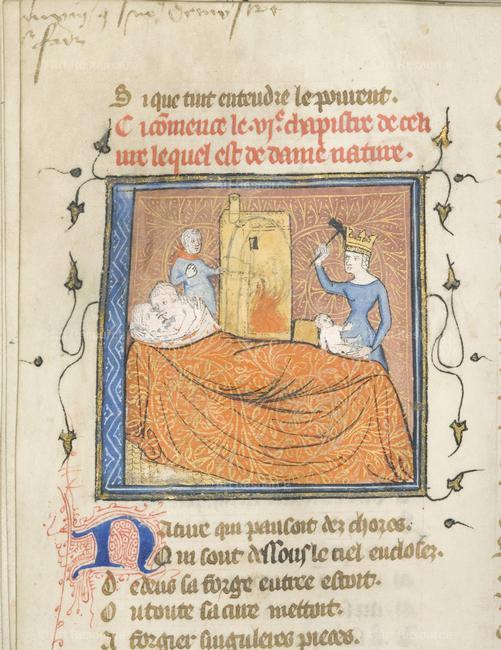 S i que tuit entendre le peurent.
C i cōmence le .vjᵉ. chapistre de ce li
ure lequel est de dame nature.
Nature qui pansoit dez chozes.
Q ui sont dessous le ciel enclosez.
D edens sa forge entree estoit.
O u toute sa cure mettoit.
A forgier singuleres pieces.